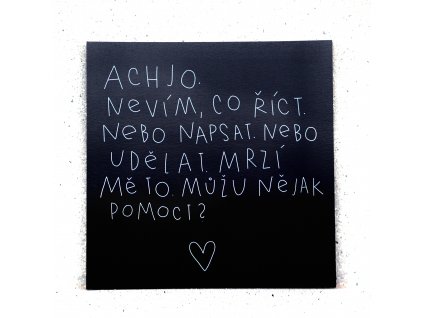 ACH JO.
NEVÍM, CO ŘÍCT.
NEBO NAPSAT. NEBO
UDĚLAT. MRZÍ
MĚ TO. MŮŽU NĚJAK
POMOCT?